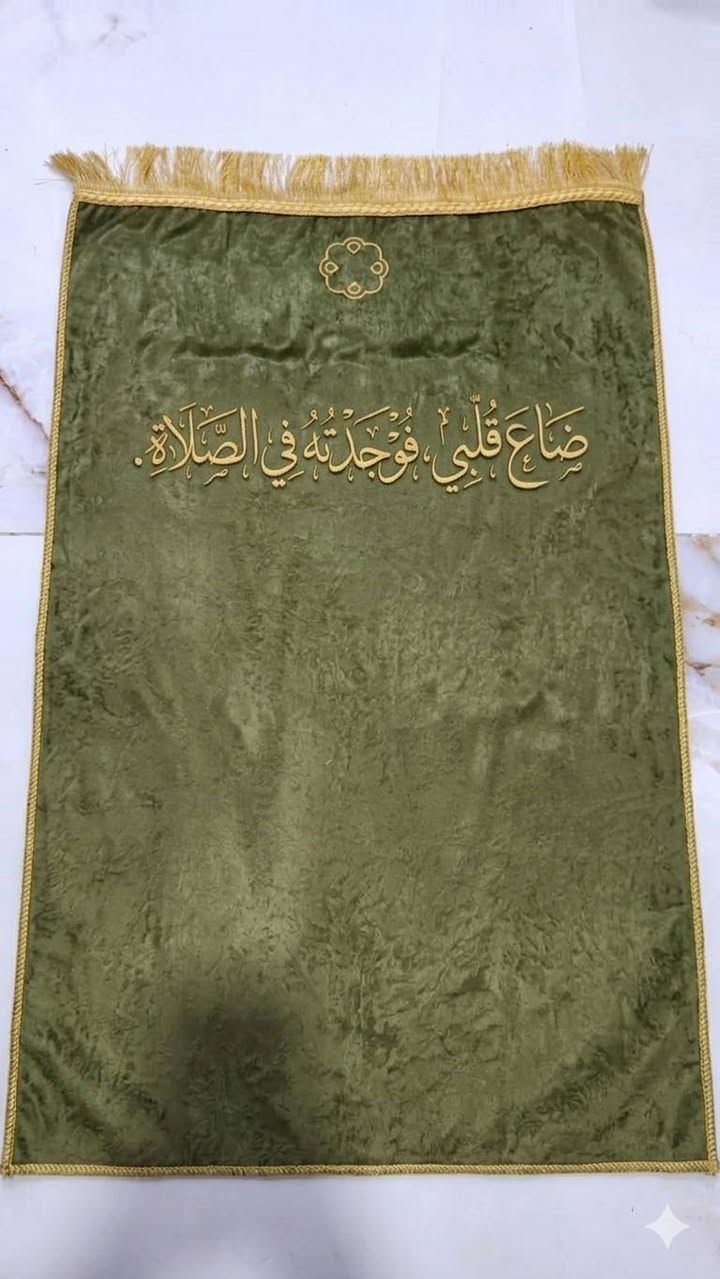 ضَاعَ قَلْبِي، فَوْجَدْتُهُ فِي الصَّلَاةِ.